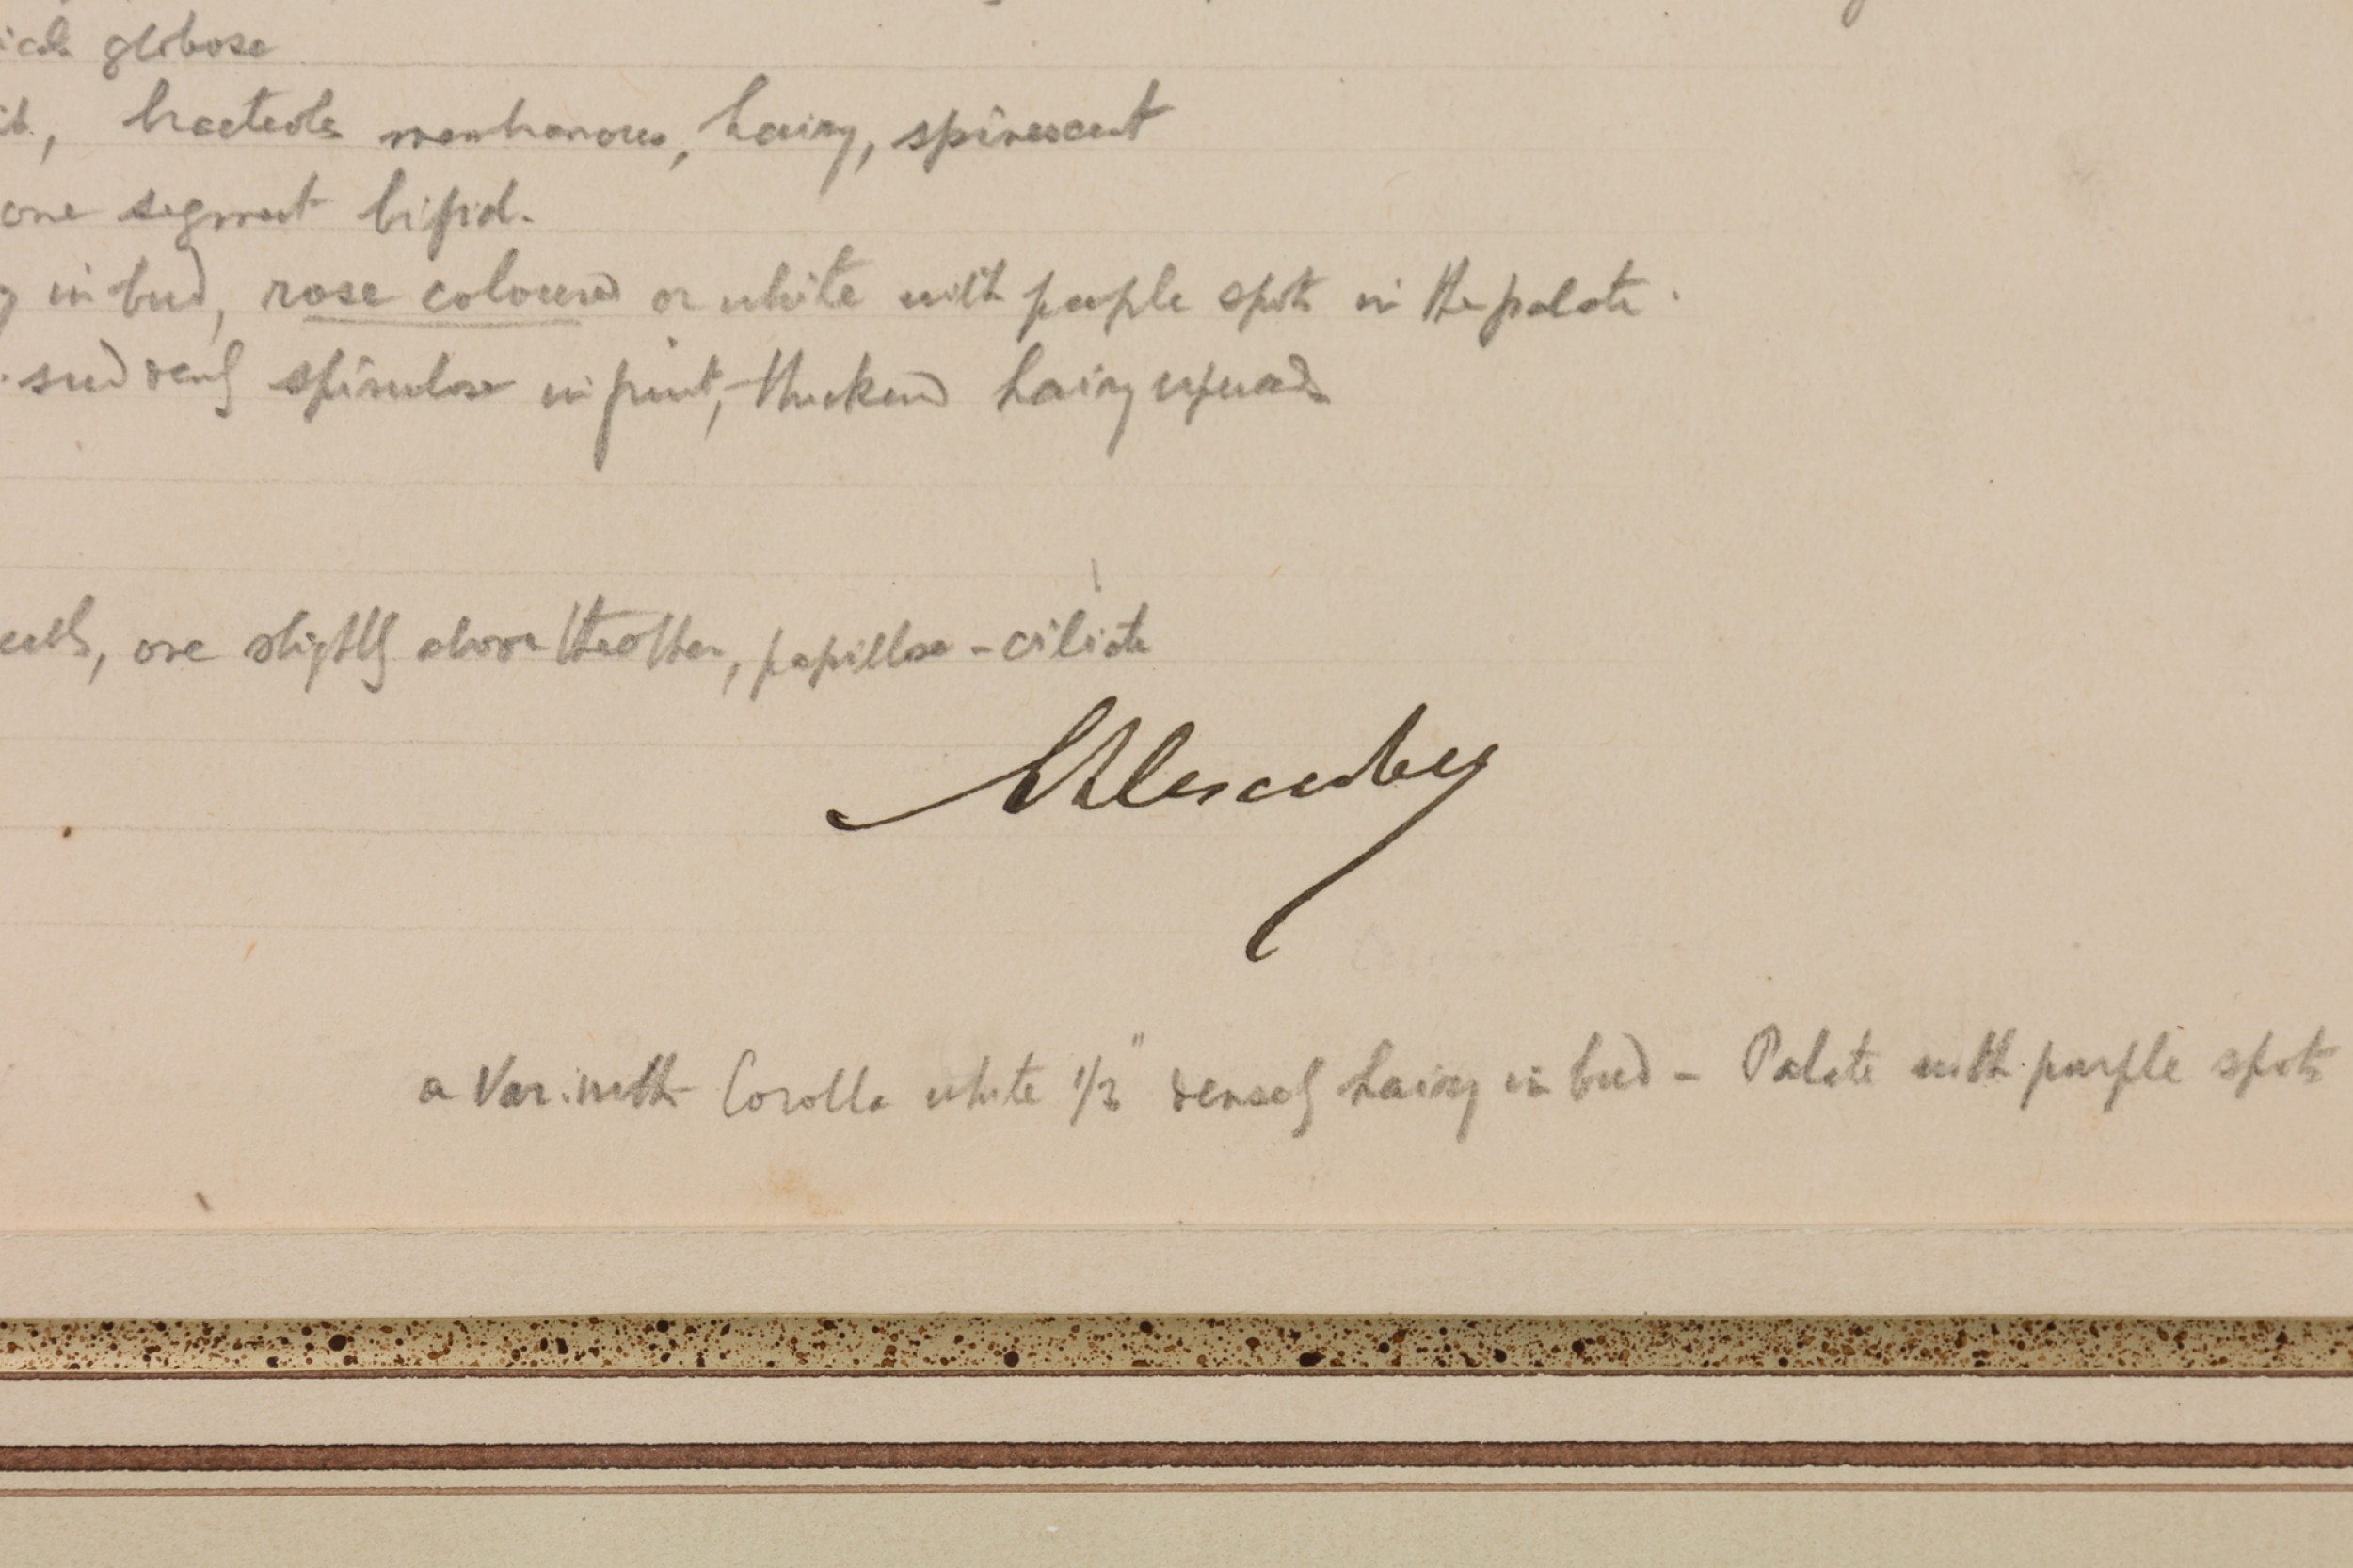 globose
bracteoles membranous, hairy, spinescent
one segment bifid.
in bud, rose coloured or white with purple spots in the palate.
suddenly spinulose in fruit, thickened hairy upwards
one slightly above the other, papillose-ciliate
a Var. with Corolla white 1/2" densely hairy in bud - Palate with purple spots